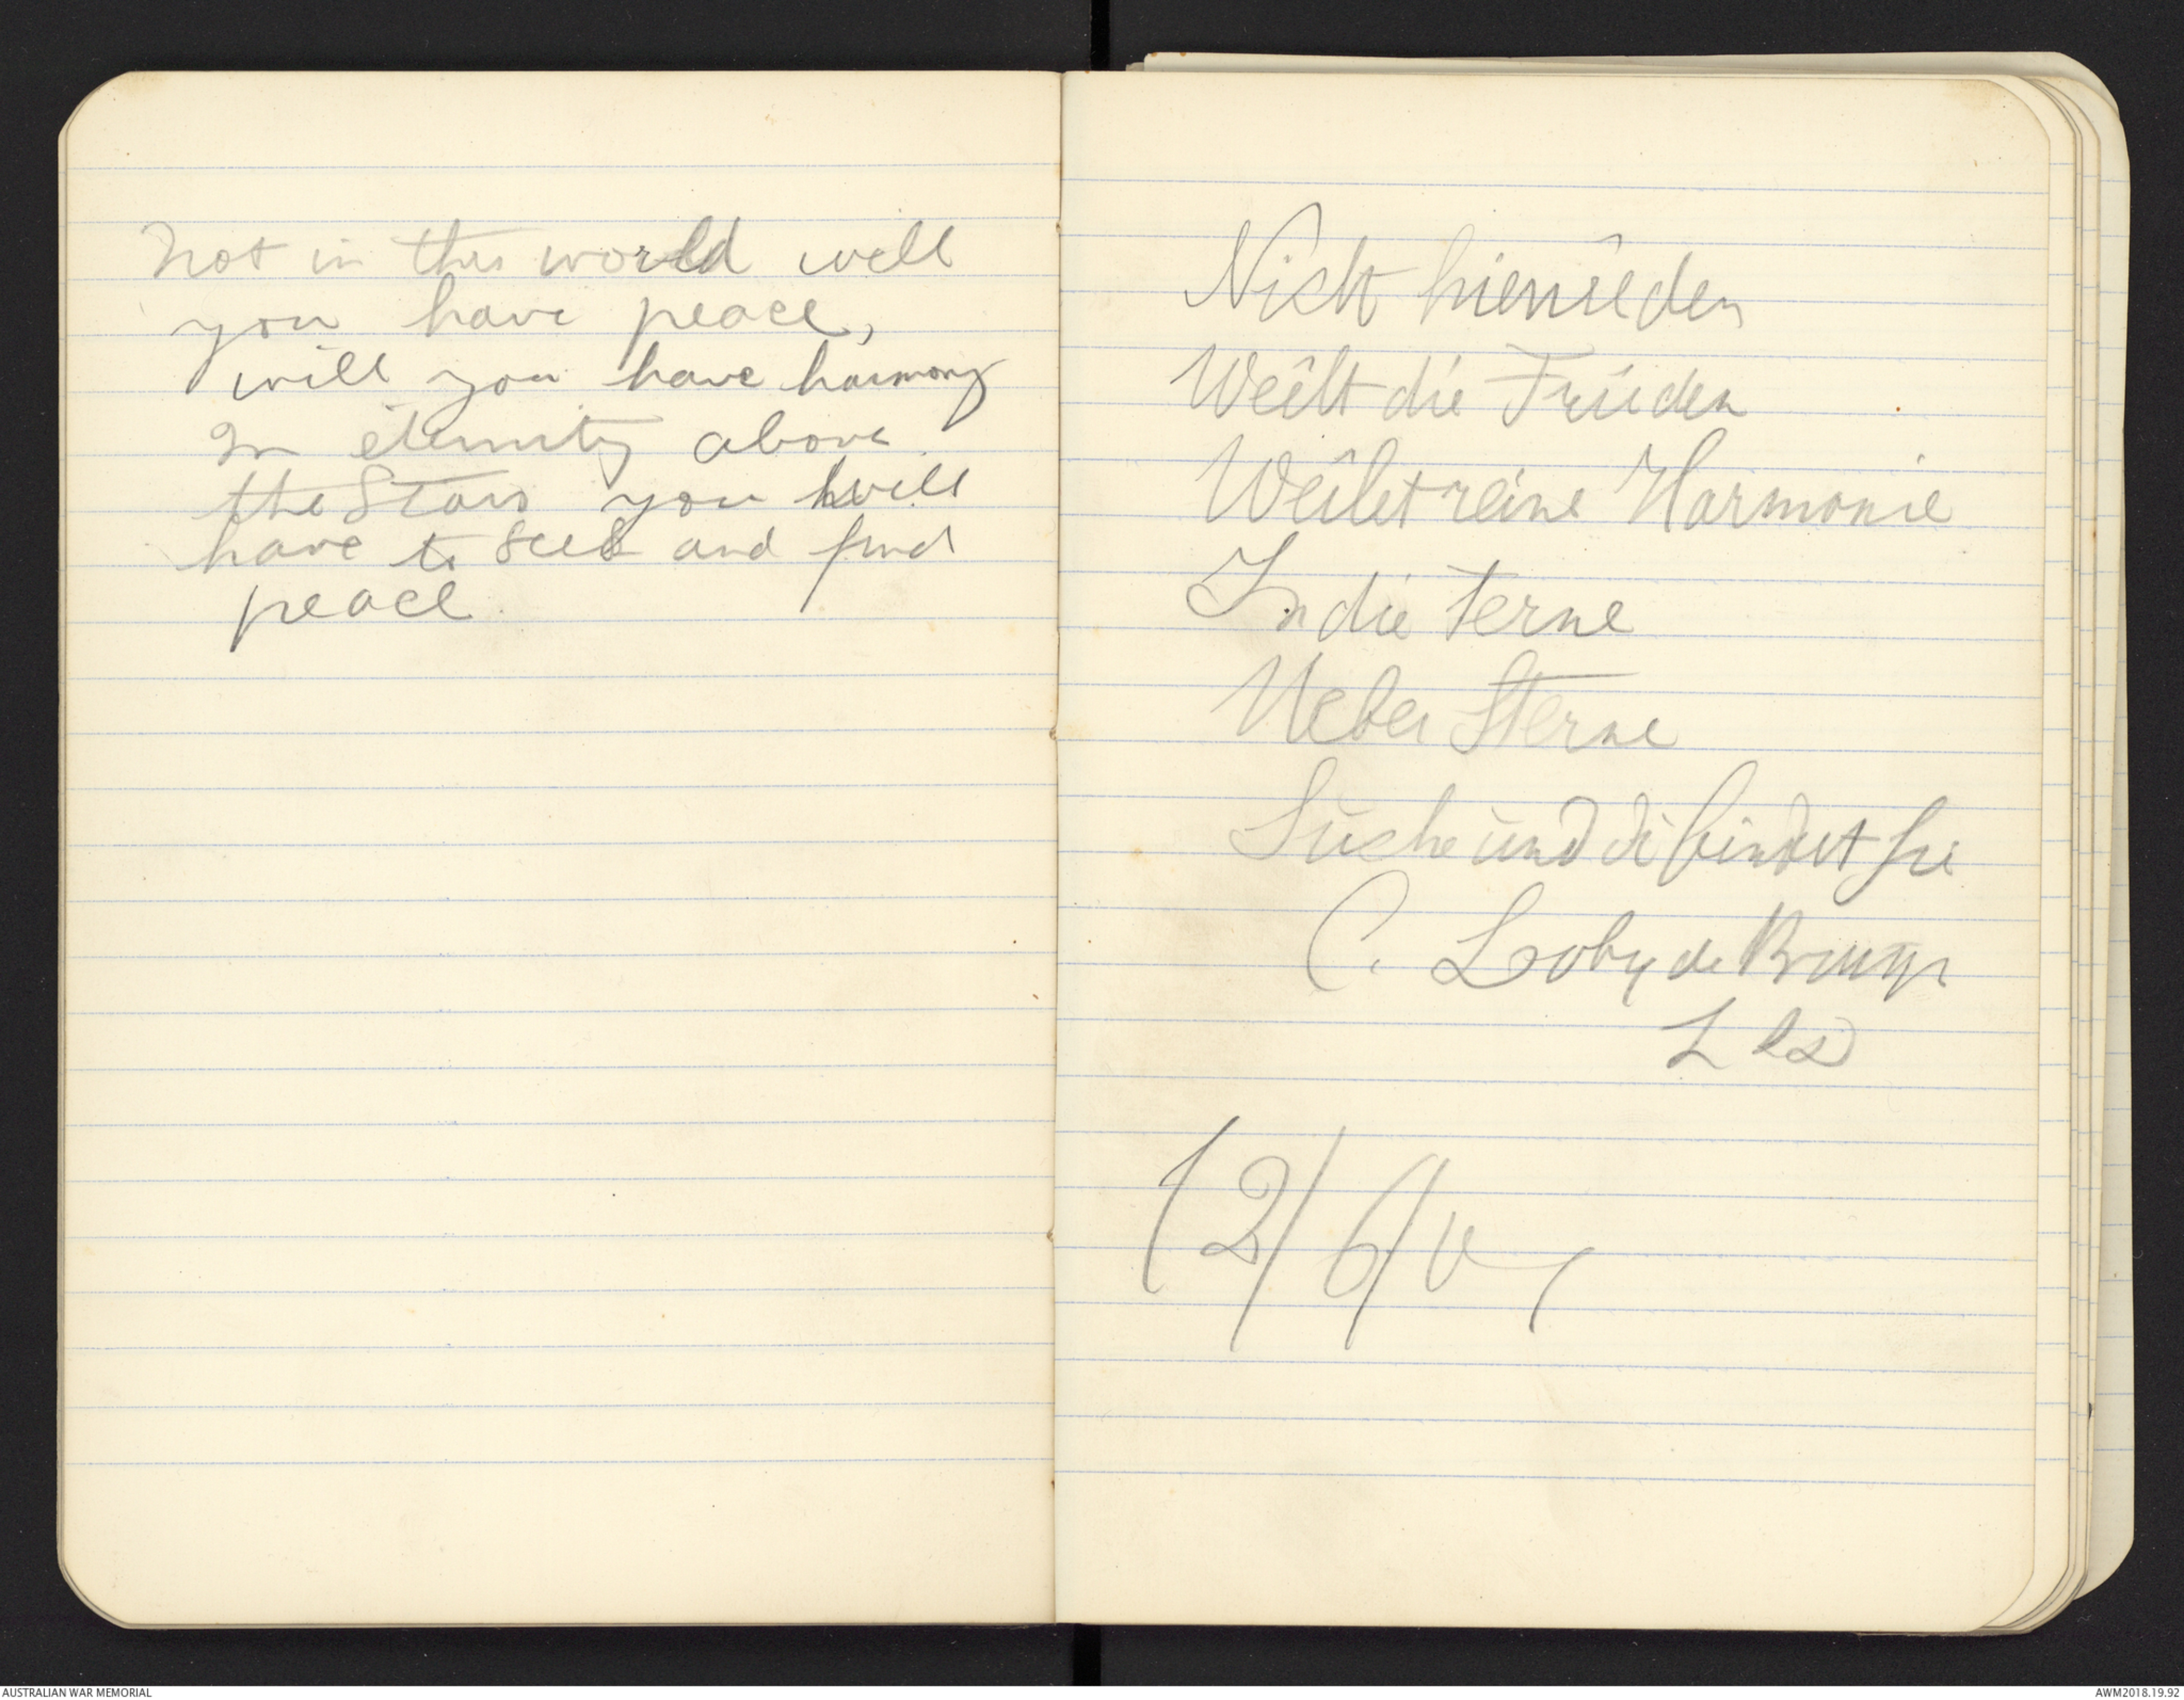 Not in this world will
you have peace,
will you have harmony
In eternity above
the Stars you will
have to seek and find
peace.
Nicht hienieden
Weilt die Frieden
Weilet reine Harmonie
In die ferne
Ueber Sterne
Suche und di findet sie
C. Loby de Bruyn
12/6/
AUSTRALIAN WAR MEMORIAL
AWM2018.19.92